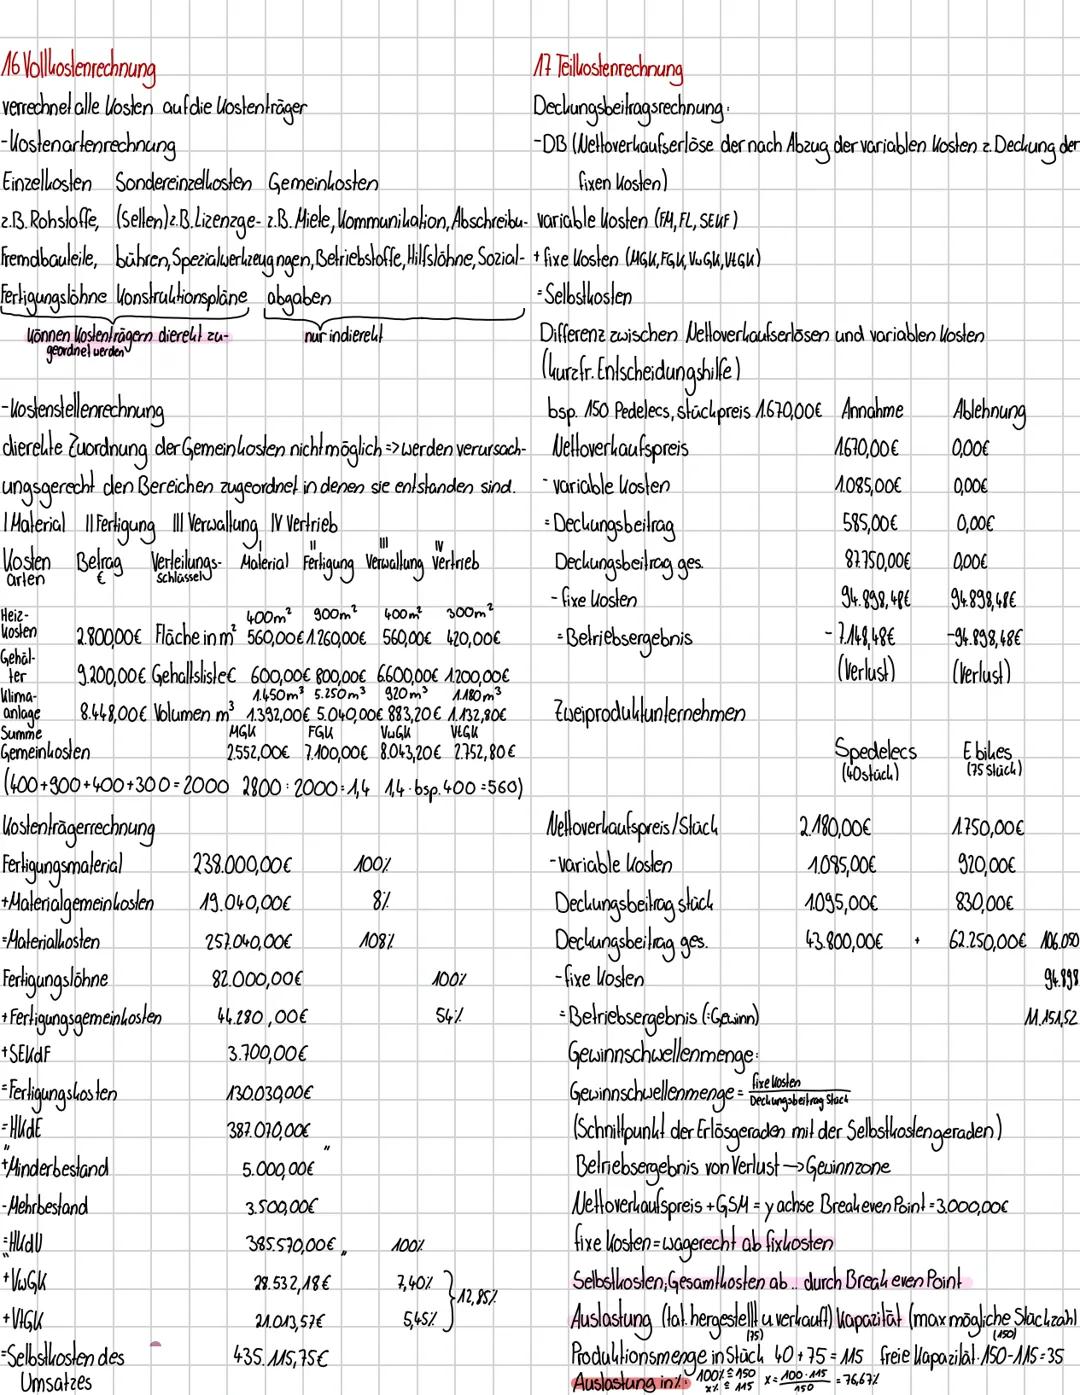 16 Vollkostenrechnung
verrechnet alle Kosten auf die Kostenträger
-Kostenartenrechnung
Einzelkosten Sondereinzelkosten Gemeinkosten
z.B. Rohstoffe, (Selten) z.B. Lizenzge- z.B. Miete, Kommunikation, Abschreibu-
Fremdbauteile, bühren, Spezialwerkzeug ngen, Betriebstoffe, Hilfslöhne, Sozial-
Fertigungslöhne Konstruktionspläne abgaben
können Kostenträgern dierekt zu- nur indierekt
geordnet werden
-Kostenstellenrechnung
dierekte Zuordnung der Gemeinkosten nicht möglich => werden verursach-
ungsgerecht den Bereichen zugeordnet in denen sie entstanden sind.
I Material II Fertigung III Verwaltung IV Vertrieb
I II III IV
Kosten Betrag Verteilungs- Material Fertigung Verwaltung Vertrieb
arten € schlüssel
400m² 900m² 400m² 300m²
Heiz-
kosten 2.800,00€ Fläche in m² 560,00€ 1.260,00€ 560,00€ 420,00€
Gehäl-
ter 9.200,00€ Gehaltsliste€ 600,00€ 800,00€ 6.600,00€ 1.200,00€
1.450m³ 5.250m³ 920m³ 1.180m³
Klima-
anlage 8.448,00€ Volumen m³ 1.392,00€ 5.040,00€ 883,20€ 1.132,80€
Summe MGK FGK VwGK VtGK
Gemeinkosten 2.552,00€ 7.100,00€ 8.043,20€ 2.752,80€
(400+900+400+300=2000 2800:2000=1,4 1,4·bsp.400=560)
Kostenträgerrechnung
Fertigungsmaterial 238.000,00€ 100%
+Materialgemeinkosten 19.040,00€ 8%
=Materialkosten 257.040,00€ 108%
Fertigungslöhne 82.000,00€ 100%
+Fertigungsgemeinkosten 44.280,00€ 54%
+SEKdF 3.700,00€
=Fertigungskosten 130.030,00€
=HKdE 387.070,00€
" "
+Minderbestand 5.000,00€
-Mehrbestand 3.500,00€
=HKdU 385.570,00€ " 100%
"
+VwGK 28.532,18€ 7,40%
12,85%
+VtGK 21.013,57€ 5,45%
=Selbstkosten des 435.115,75€
Umsatzes
17 Teilkostenrechnung
Deckungsbeitragsrechnung:
-DB (Nettoverkaufserlöse der nach Abzug der variablen Kosten z. Deckung der
fixen Kosten)
variable Kosten (FM, FL, SEKF)
+ fixe Kosten (MGK, FGK, VwGK, VtGK)
=Selbstkosten
Differenz zwischen Nettoverkaufserlösen und variablen Kosten
(kurzfr. Entscheidungshilfe)
bsp. 150 Pedelecs, stückpreis 1.670,00€ Annahme Ablehnung
Nettoverkaufspreis 1.670,00€ 0,00€
- variable Kosten 1.085,00€ 0,00€
= Deckungsbeitrag 585,00€ 0,00€
Deckungsbeitrag ges. 87.750,00€ 0,00€
- fixe Kosten 94.898,48€ 94.898,48€
=Betriebsergebnis -7.148,48€ -94.898,48€
(Verlust) (Verlust)
Zweiproduktunternehmen
Spedelecs E bikes
(40 stück) (75 Stück)
Nettoverkaufspreis/Stück 2.180,00€ 1.750,00€
-variable Kosten 1.085,00€ 920,00€
Deckungsbeitrag stück 1.095,00€ 830,00€
Deckungsbeitrag ges. 43.800,00€ + 62.250,00€ 106.050
-fixe Kosten 94.898
=Betriebsergebnis (=Gewinn) 11.151,52
Gewinnschwellenmenge:
Gewinnschwellenmenge = fixe Kosten
Deckungsbeitrag Stück
(Schnittpunkt der Erlösgeraden mit der Selbstkostengeraden)
Betriebsergebnis von Verlust → Gewinnzone
Nettoverkaufspreis + GSM = y achse Break even Point = 3.000,00€
fixe Kosten = wagerecht ab fixkosten
Selbstkosten; Gesamtkosten ab .. durch Break even Point
Auslastung (tat. hergestellt u verkauft) Kapazität (max mögliche Stückzahl
(75) (150)
Produktionsmenge in Stück 40+75=115 freie Kapazität: 150-115=35
Auslastung in %: 100% ≙ 150 x% ≙ 115 x= 100·115 / 150 = 76,67%